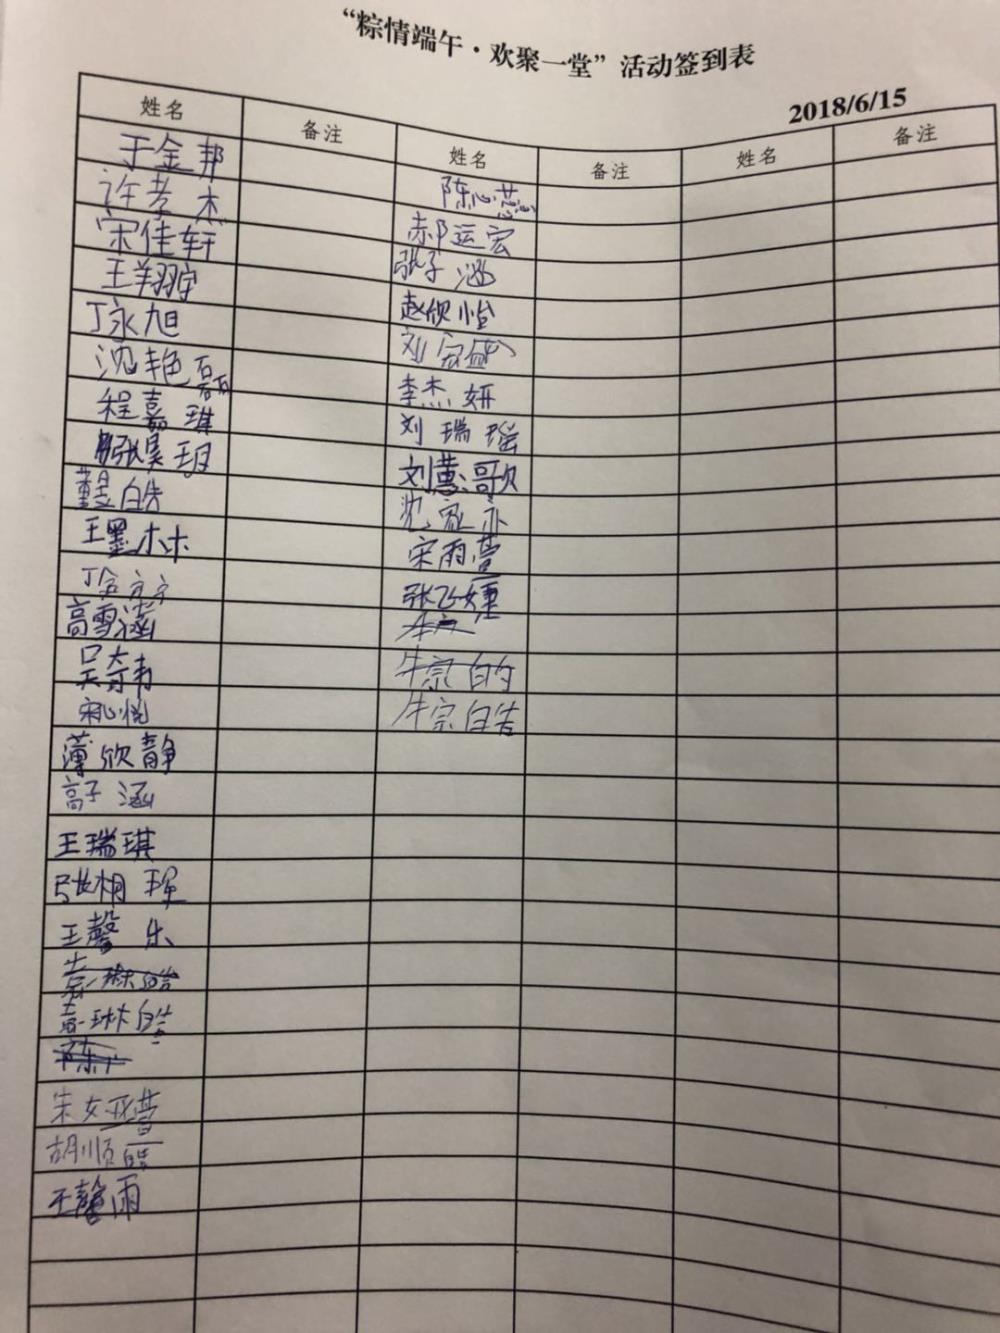 “粽情端午·欢聚一堂”活动签到表
2018/6/15
姓名 备注 姓名 备注 姓名 备注
于金邦
许孝杰
宋佳轩
王翔宇
丁永旭
沈艳磊
程嘉琪
张昊玥
董昱皓
王墨林
高雪涵
吴奇韦
宋心悦
薄欣静
高子涵
王瑞琪
张栩珲
王馨乐
袁琳皓
袁琳皓
陈
朱女亚萱
胡顺皓
王馨雨
陈心蕊
郝运宏
张子涵
赵欣怡
刘家盛
李杰妍
刘瑞瑶
刘慧歌
沈家亦
宋雨萱
张飞婕
牛宗的
牛宗皓